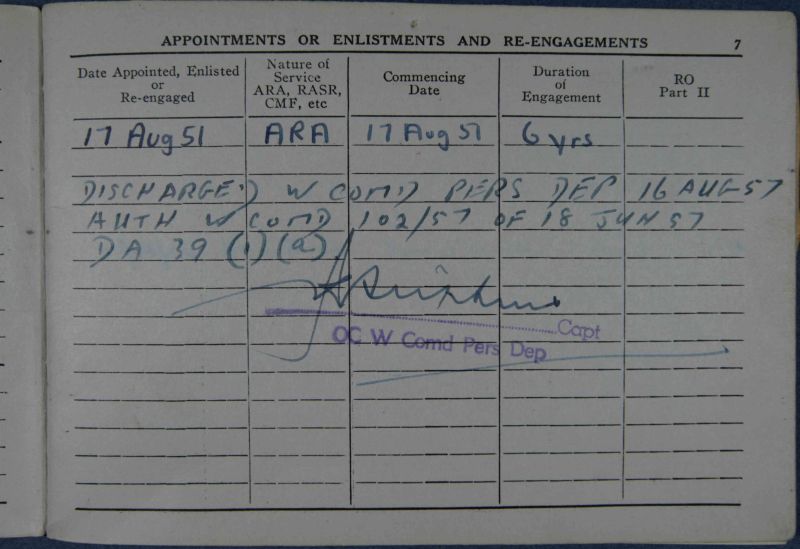 APPOINTMENTS OR ENLISTMENTS AND RE-ENGAGEMENTS 7
Date Appointed, Enlisted or Re-engaged
Nature of Service ARA, RASR, CMF, etc
Commencing Date
Duration of Engagement
RO Part II
17 Aug 51 ARA 17 Aug 51 6 yrs
DISCHARGED W COMD PERS DEP 16 AUG 57
AUTH W COMD 102/57 OF 18 JUN 57
DA 39 (1) (a)
Capt
OC W Comd Pers Dep